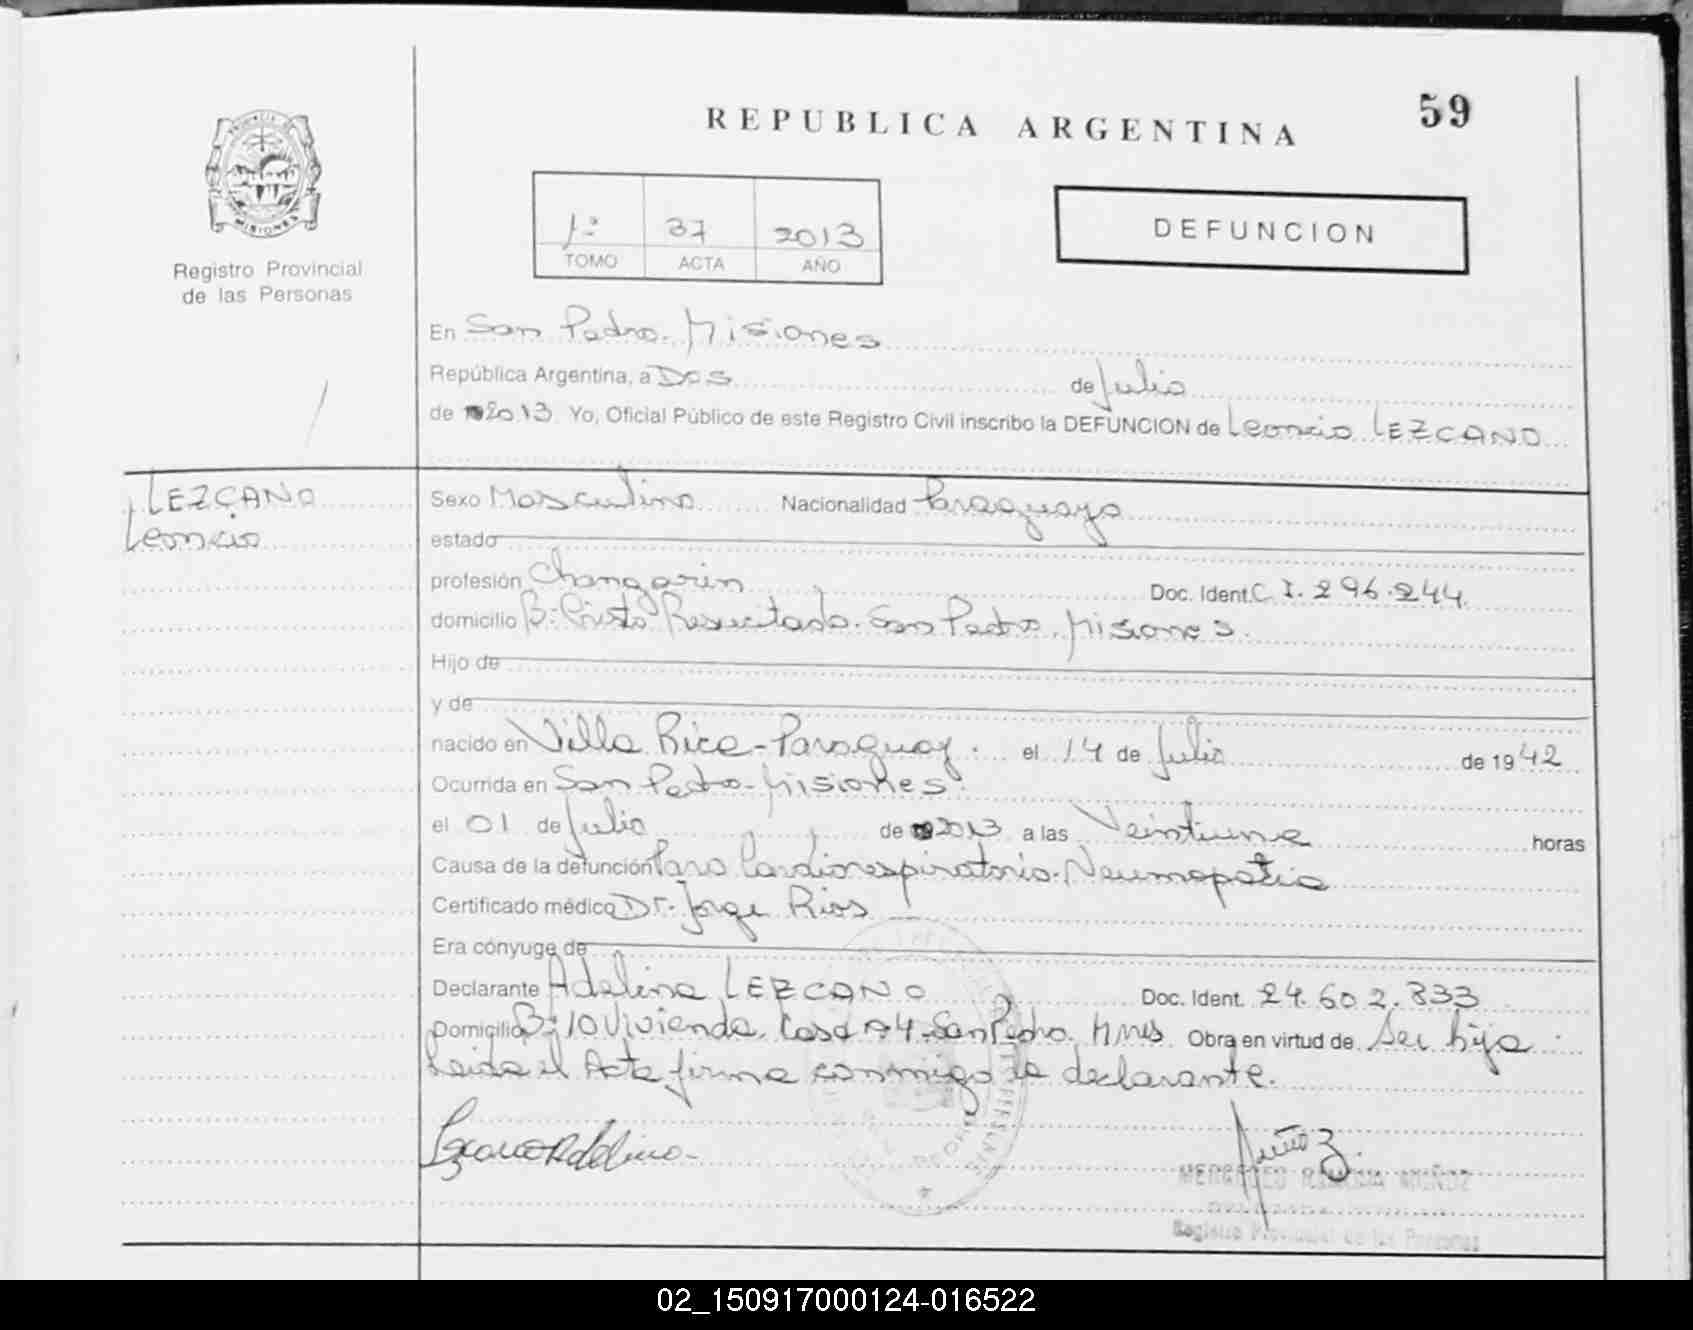 REPUBLICA ARGENTINA
59
MISIONES
Registro Provincial
de las Personas
1º 37 2013
TOMO ACTA AÑO
DEFUNCION
En San Pedro. Misiones
República Argentina, a Dos de Julio
de 2013 Yo, Oficial Público de este Registro Civil inscribo la DEFUNCION de Leoncio LEZCANO
LEZCANO
Leoncio
Sexo Masculino Nacionalidad Paraguaya
estado
profesión Changarin Doc. Ident. C.I. 296.244
domicilio B: Cristo Resucitado. San Pedro. Misiones.
Hijo de
y de
nacido en Villa Rica-Paraguay. el 14 de Julio de 1942
Ocurrida en San Pedro-Misiones.
el 01 de Julio de 2013 a las Veintiuna horas
Causa de la defunción Paro Cardiorespiratorio. Neumopatia
Certificado médico Dr. Jorge Rios
Era cónyuge de
Declarante Adelina LEZCANO Doc. Ident. 24.602.833
Domicilio B: 10 Vivienda. Casa 4. San Pedro. Mnes Obra en virtud de Ser hija
Leida el Acta firma conmigo la declarante.
Lezcano Adelina
Muñoz
MERCEDES RAMONA MUÑOZ
Registro Provincial de las Personas
02_150917000124-016522